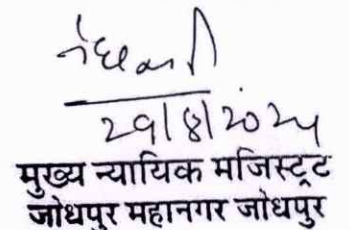 29/8/2024
मुख्य न्यायिक मजिस्ट्रट
जोधपुर महानगर जोधपुर